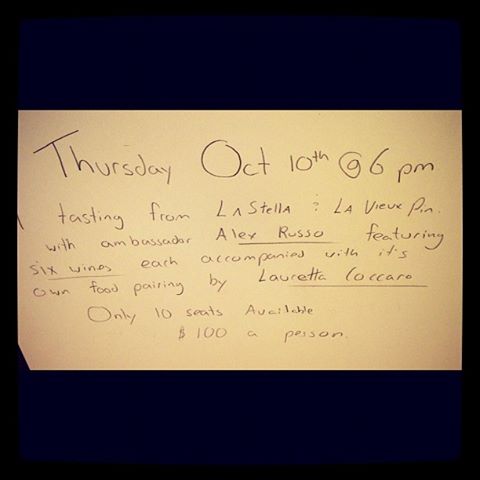 Thursday Oct 10th @ 6 pm
tasting from LaStella & La Vieux Pin.
with ambassador Alex Russo featuring
six wines each accompanied with it's
own food pairing by Lauretta Coccaro
Only 10 seats Available
$100 a person.